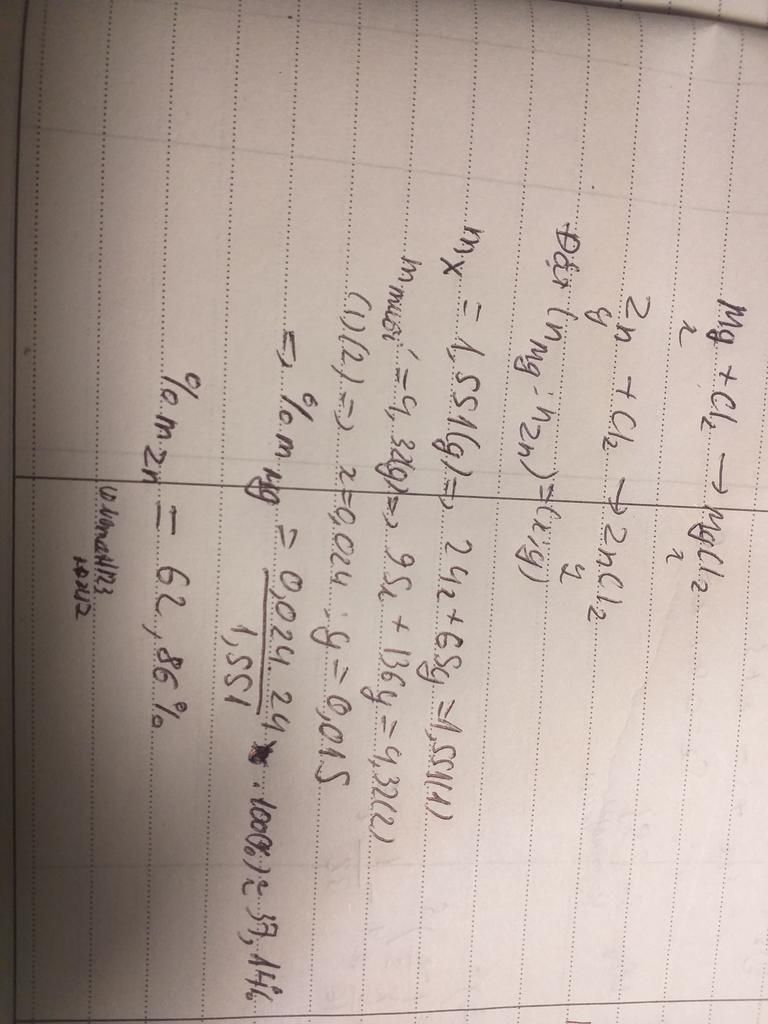 Mg + Cl₂ → MgCl₂
x x
Zn + Cl₂ → ZnCl₂
y y
Đặt (nMg; nZn) = (x; y)
mX = 1,551(g) => 24x + 65y = 1,551(1)
mmuối = 4,32(g) => 95x + 136y = 4,32(2)
(1)(2) => x = 0,024; y = 0,015
=> %mMg = 0,024.24 / 1,551 .100(%) ≈ 37,14%
%mZn = 62,86%